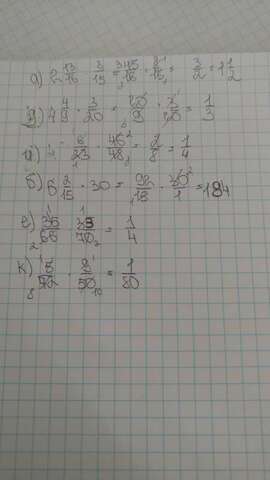 а) 2 13/16 · 8/15 = 45/16 · 8/15 = 3/2 = 1 1/2
4 4/9 · 3/20 = 40/9 · 3/20 = 1/3
и) 6/23 · 46/48 = 2/8 = 1/4
б) 6 2/15 · 30 = 92/15 · 30/1 = 184
е) 35/66 · 33/70 = 1/4
к) 5/72 · 8/50 = 1/80